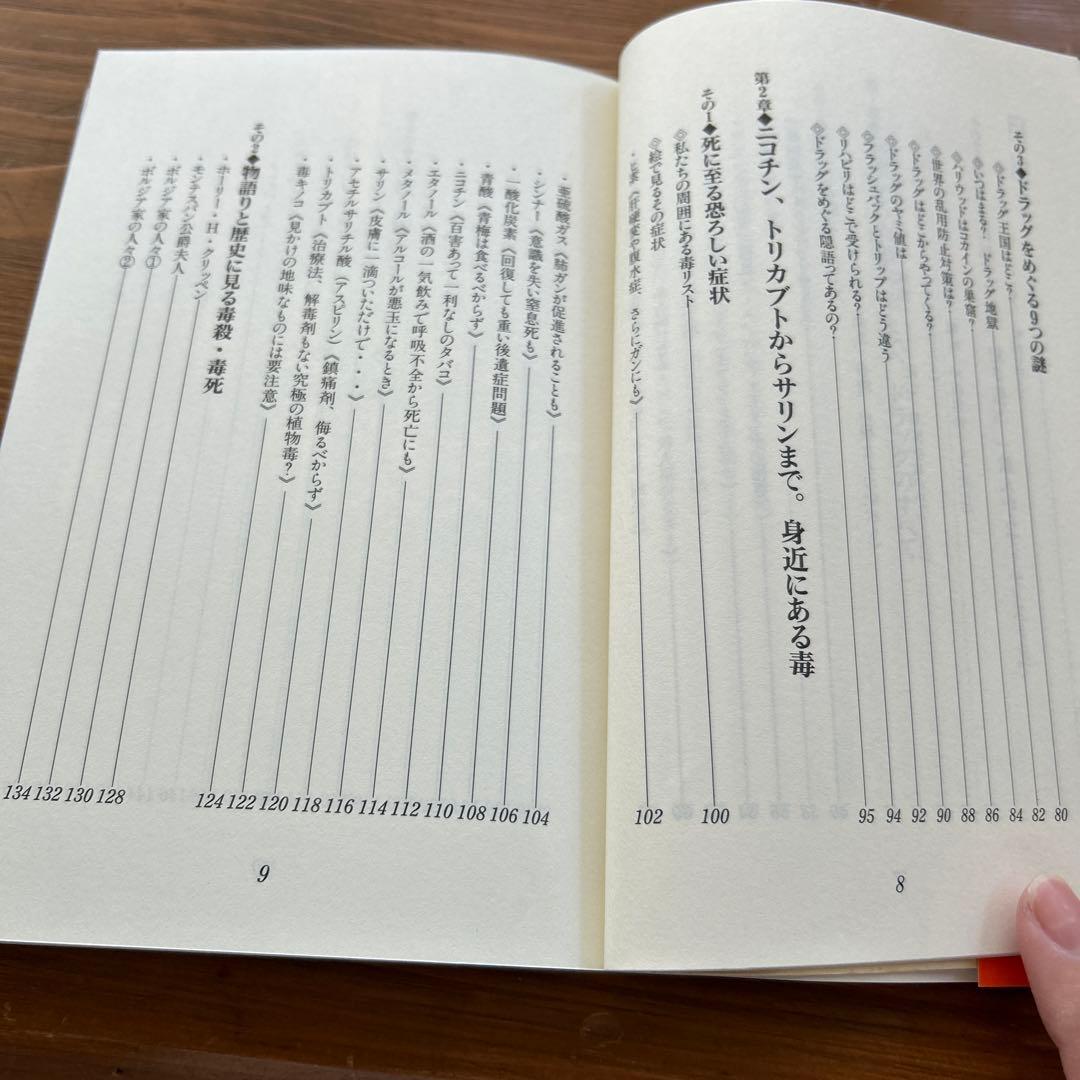 その3◆ドラッグをめぐる9つの謎
◇ドラッグ王国はどこ? 80
◇いつはまる? ドラッグ地獄 82
◇ハリウッドはコカインの巣窟? 84
◇世界の乱用防止対策は? 86
◇ドラッグはどこからやってくる? 88
◇ドラッグのヤミ値は 90
◇フラッシュバックとトリップはどう違う 92
◇リハビリはどこで受けられる? 94
◇ドラッグをめぐる隠語ってあるの? 95
第2章◆ニコチン、トリカブトからサリンまで。身近にある毒
その1◆死に至る恐ろしい症状
◇私たちの周囲にある毒リスト 100
◇絵で見るその症状
・ヒ素《肝硬変や腹水症、さらにガンにも》 102
8
・亜硫酸ガス《肺ガンが促進されることも》 104
・シンナー《意識を失い窒息死も》 106
・一酸化炭素《回復しても重い後遺症問題》 108
・青酸《青梅は食べるべからず》 110
・ニコチン《百害あって一利なしのタバコ》 112
・エタノール《酒の一気飲みで呼吸不全から死亡にも》 114
・メタノール《アルコールが悪玉になるとき》 116
・サリン《皮膚に一滴ついただけで・・・》 118
・アセチルサリチル酸（アスピリン）《鎮痛剤、侮るべからず》 120
・トリカブト《治療法、解毒剤もない究極の植物毒?》 122
・毒キノコ《見かけの地味なものには要注意》 124
その2◆物語りと歴史に見る毒殺・毒死
・ホーリー・H・クリッペン 128
・モンテスパン公爵夫人 130
・ボルジア家の人々① 132
・ボルジア家の人々② 134
9